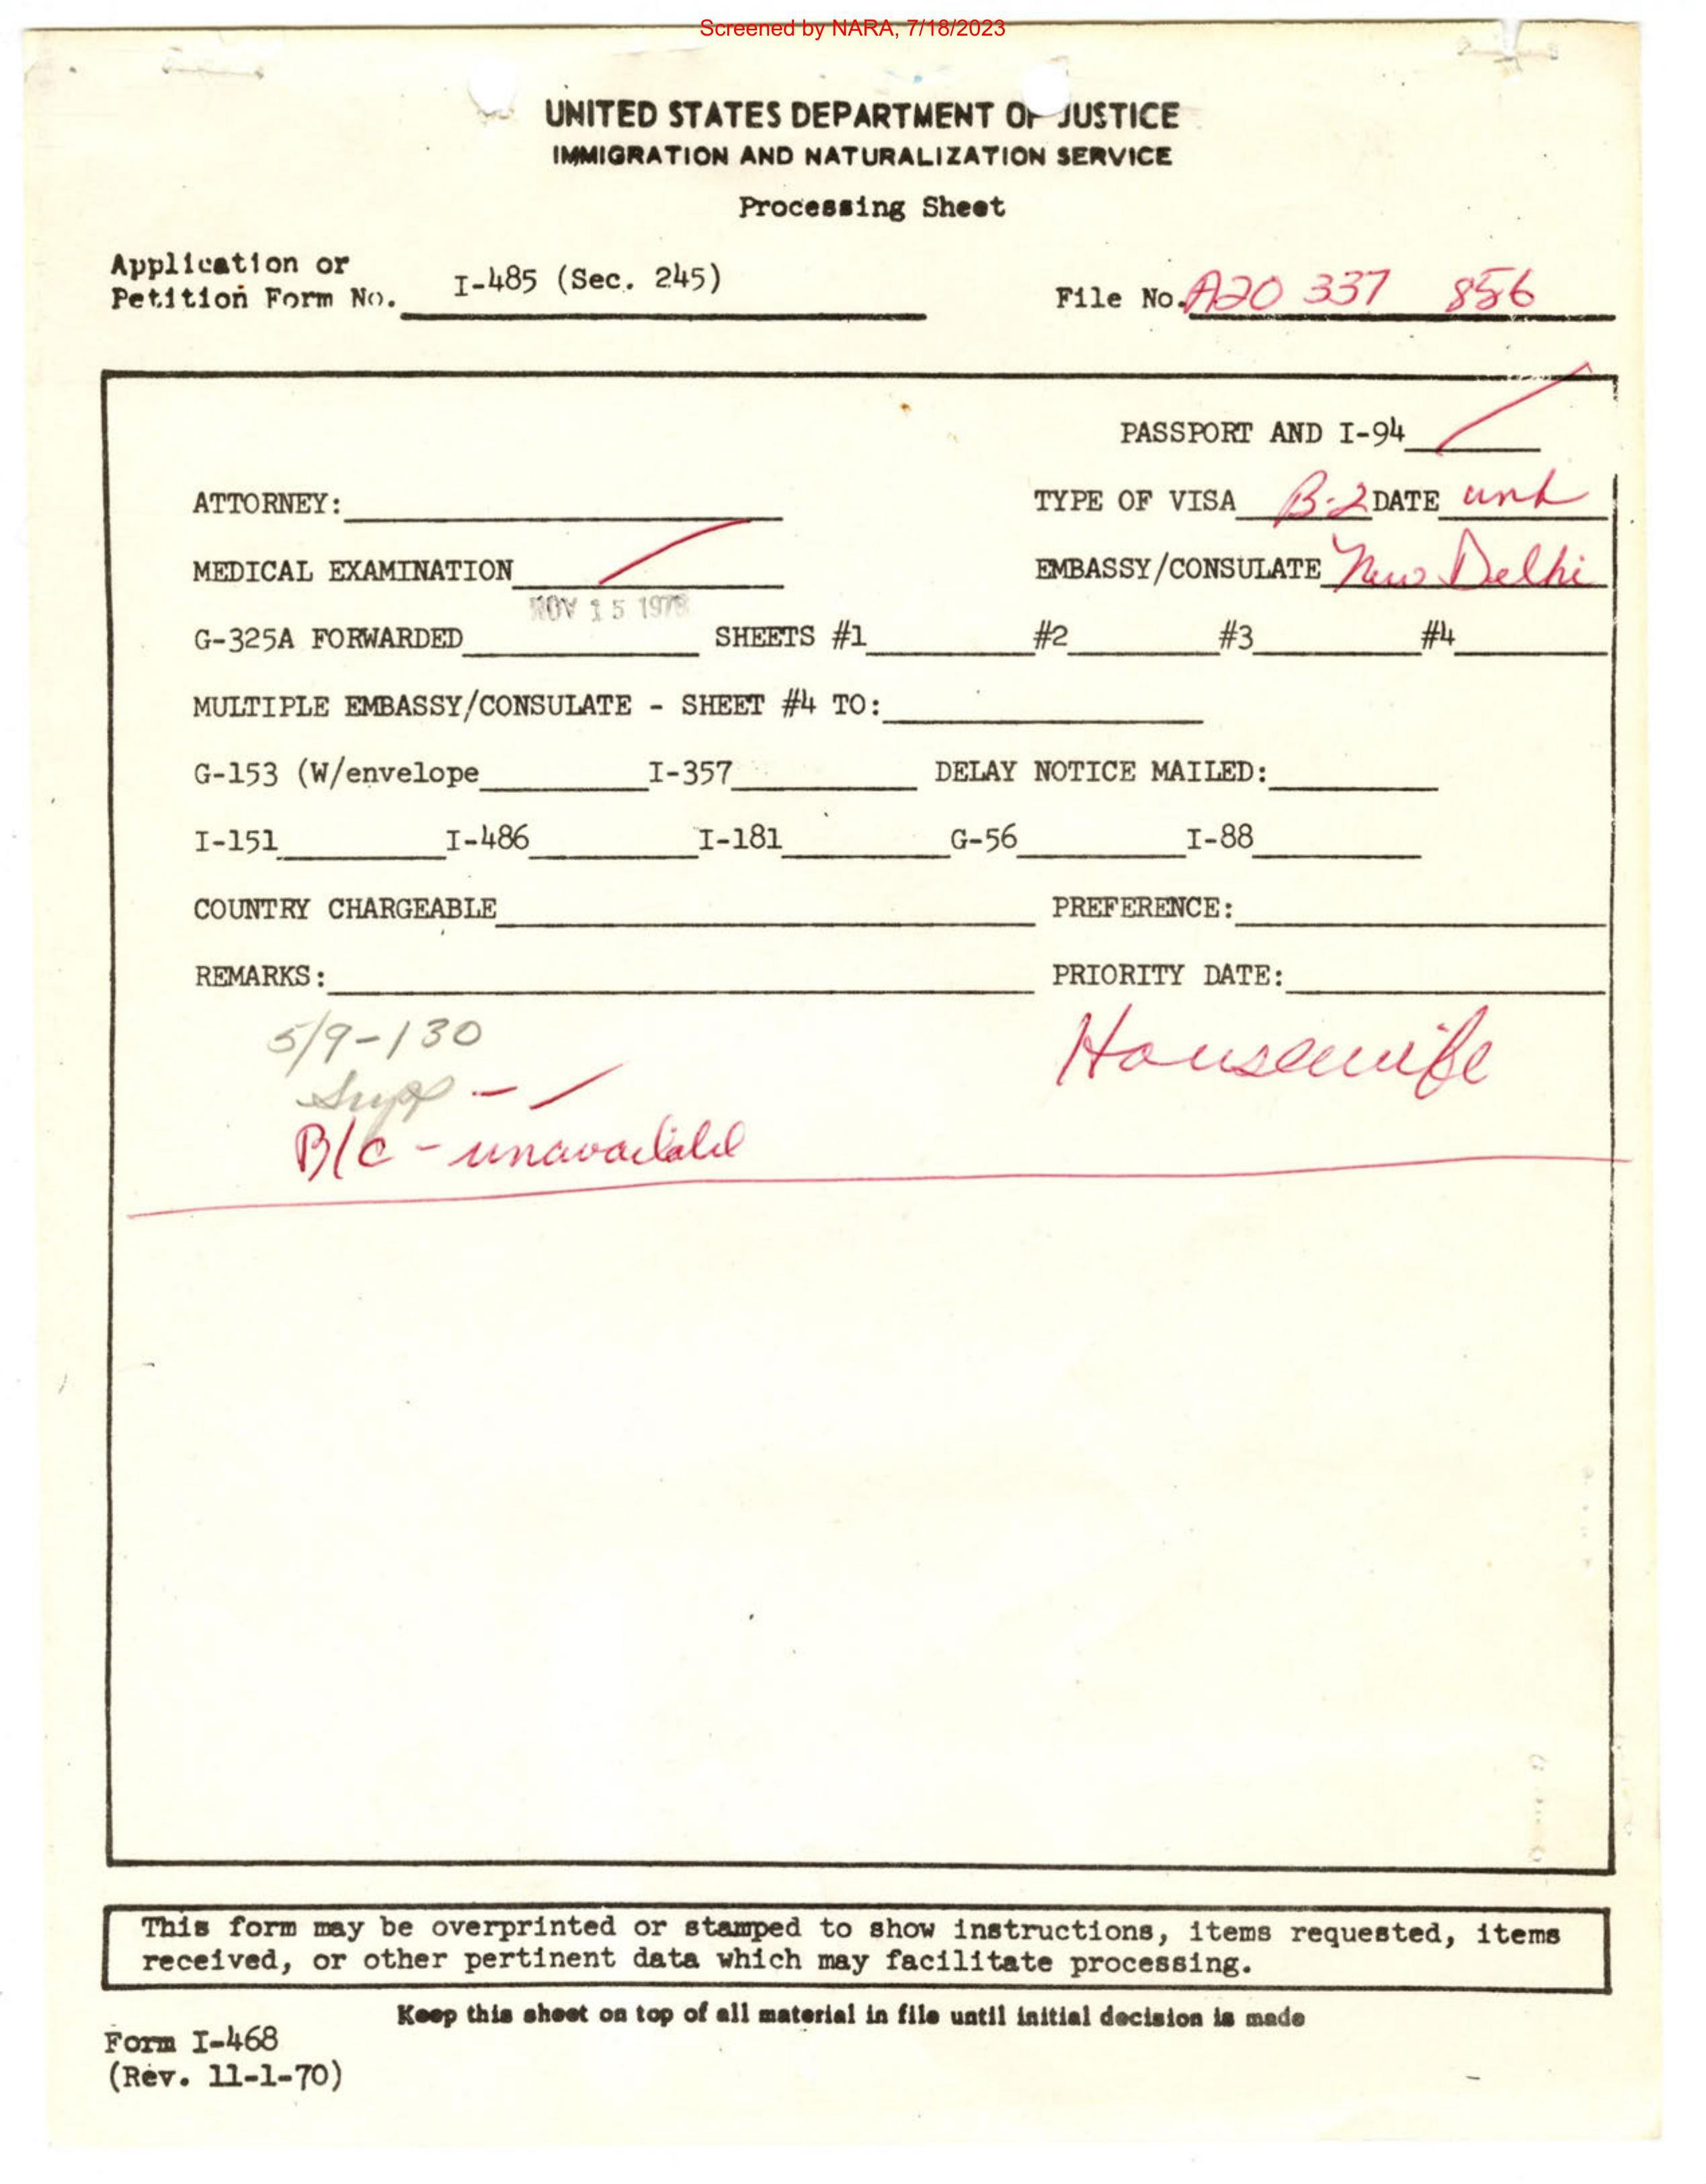 Screened by NARA, 7/18/2023
UNITED STATES DEPARTMENT OF JUSTICE
IMMIGRATION AND NATURALIZATION SERVICE
Processing Sheet
Application or
Petition Form No. I-485 (Sec. 245)
File No. A20 337 856
PASSPORT AND I-94
ATTORNEY: TYPE OF VISA B-2 DATE unk
MEDICAL EXAMINATION EMBASSY/CONSULATE New Delhi
NOV 15 1978
G-325A FORWARDED SHEETS #1 #2 #3 #4
MULTIPLE EMBASSY/CONSULATE - SHEET #4 TO:
G-153 (W/envelope I-357 DELAY NOTICE MAILED:
I-151 I-486 I-181 G-56 I-88
COUNTRY CHARGEABLE PREFERENCE:
REMARKS: PRIORITY DATE:
5/9-130 Housewife
Supp -
B/C - unavailable
This form may be overprinted or stamped to show instructions, items requested, items
received, or other pertinent data which may facilitate processing.
Keep this sheet on top of all material in file until initial decision is made
Form I-468
(Rev. 11-1-70)